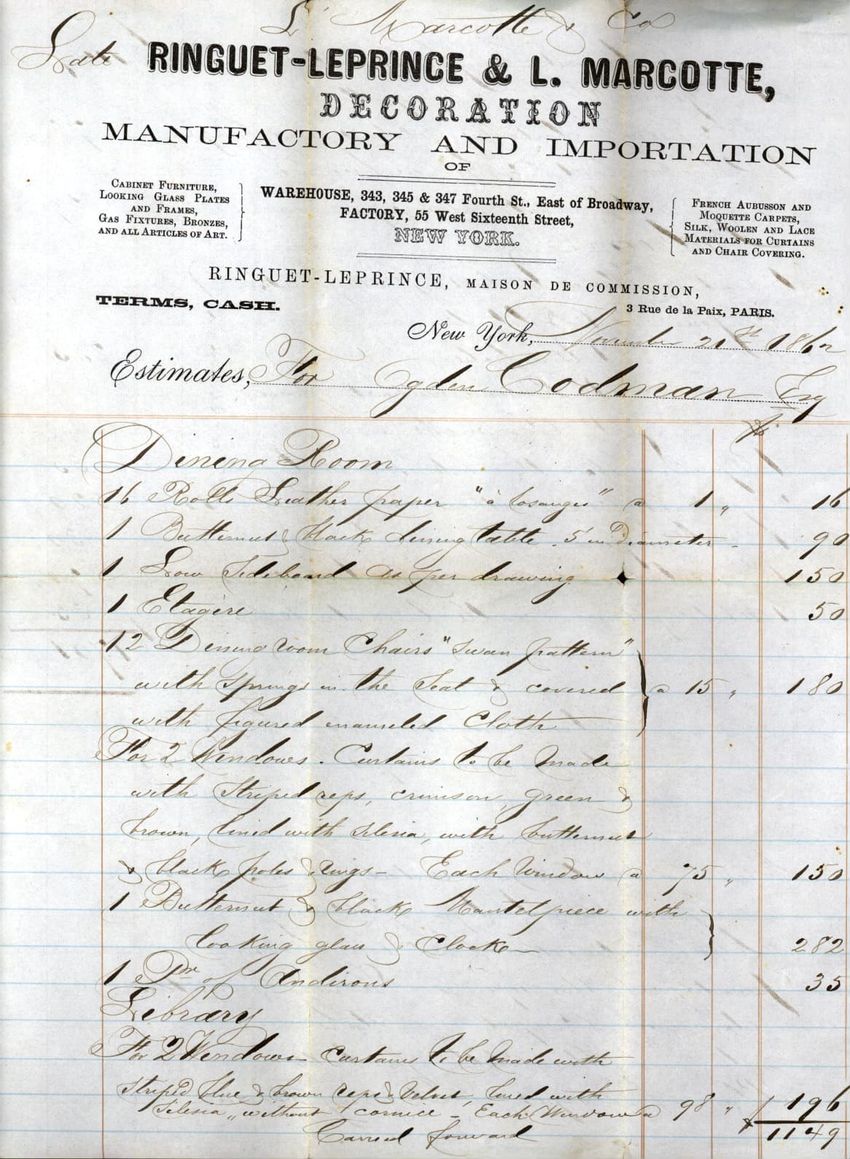 L. Marcotte & Co
Late RINGUET-LEPRINCE & L. MARCOTTE,
DECORATION
MANUFACTORY AND IMPORTATION
OF
CABINET FURNITURE,
LOOKING GLASS PLATES
AND FRAMES,
GAS FIXTURES, BRONZES,
AND ALL ARTICLES OF ART.
WAREHOUSE, 343, 345 & 347 Fourth St., East of Broadway,
FACTORY, 55 West Sixteenth Street,
NEW YORK.
FRENCH AUBUSSON AND
MOQUETTE CARPETS,
SILK, WOOLEN AND LACE
MATERIALS FOR CURTAINS
AND CHAIR COVERING.
RINGUET-LEPRINCE, MAISON DE COMMISSION,
TERMS, CASH.
3 Rue de la Paix, PARIS.
New York, November 21st 1862
Estimates, For Ogden Codman Esq
$
Dining Room
16 Rolls Leather paper "à losanges" a 1 " 16
1 Butternut & black dining table 5' in Diameter - 90
1 Low Sideboard as per drawing 150
1 Etagère 50
12 Dining room Chairs "Swan pattern"
with springs in the Seat & covered a 15 " 180
with figured enameled Cloth
For 2 Windows. Curtains to be made
with Striped reps, crimson, green &
brown, lined with silesia, with butternut
& black poles & rings - Each Window a 75 " 150
1 Butternut & black Mantel piece with
looking glass & Clock 282
1 Pr of Andirons 35
Library
For 2 Windows curtains to be made with
Striped blue & brown reps & Velvet, lined with
Silesia, without cornice - Each Window a 98 " 196
Carried forward 1149